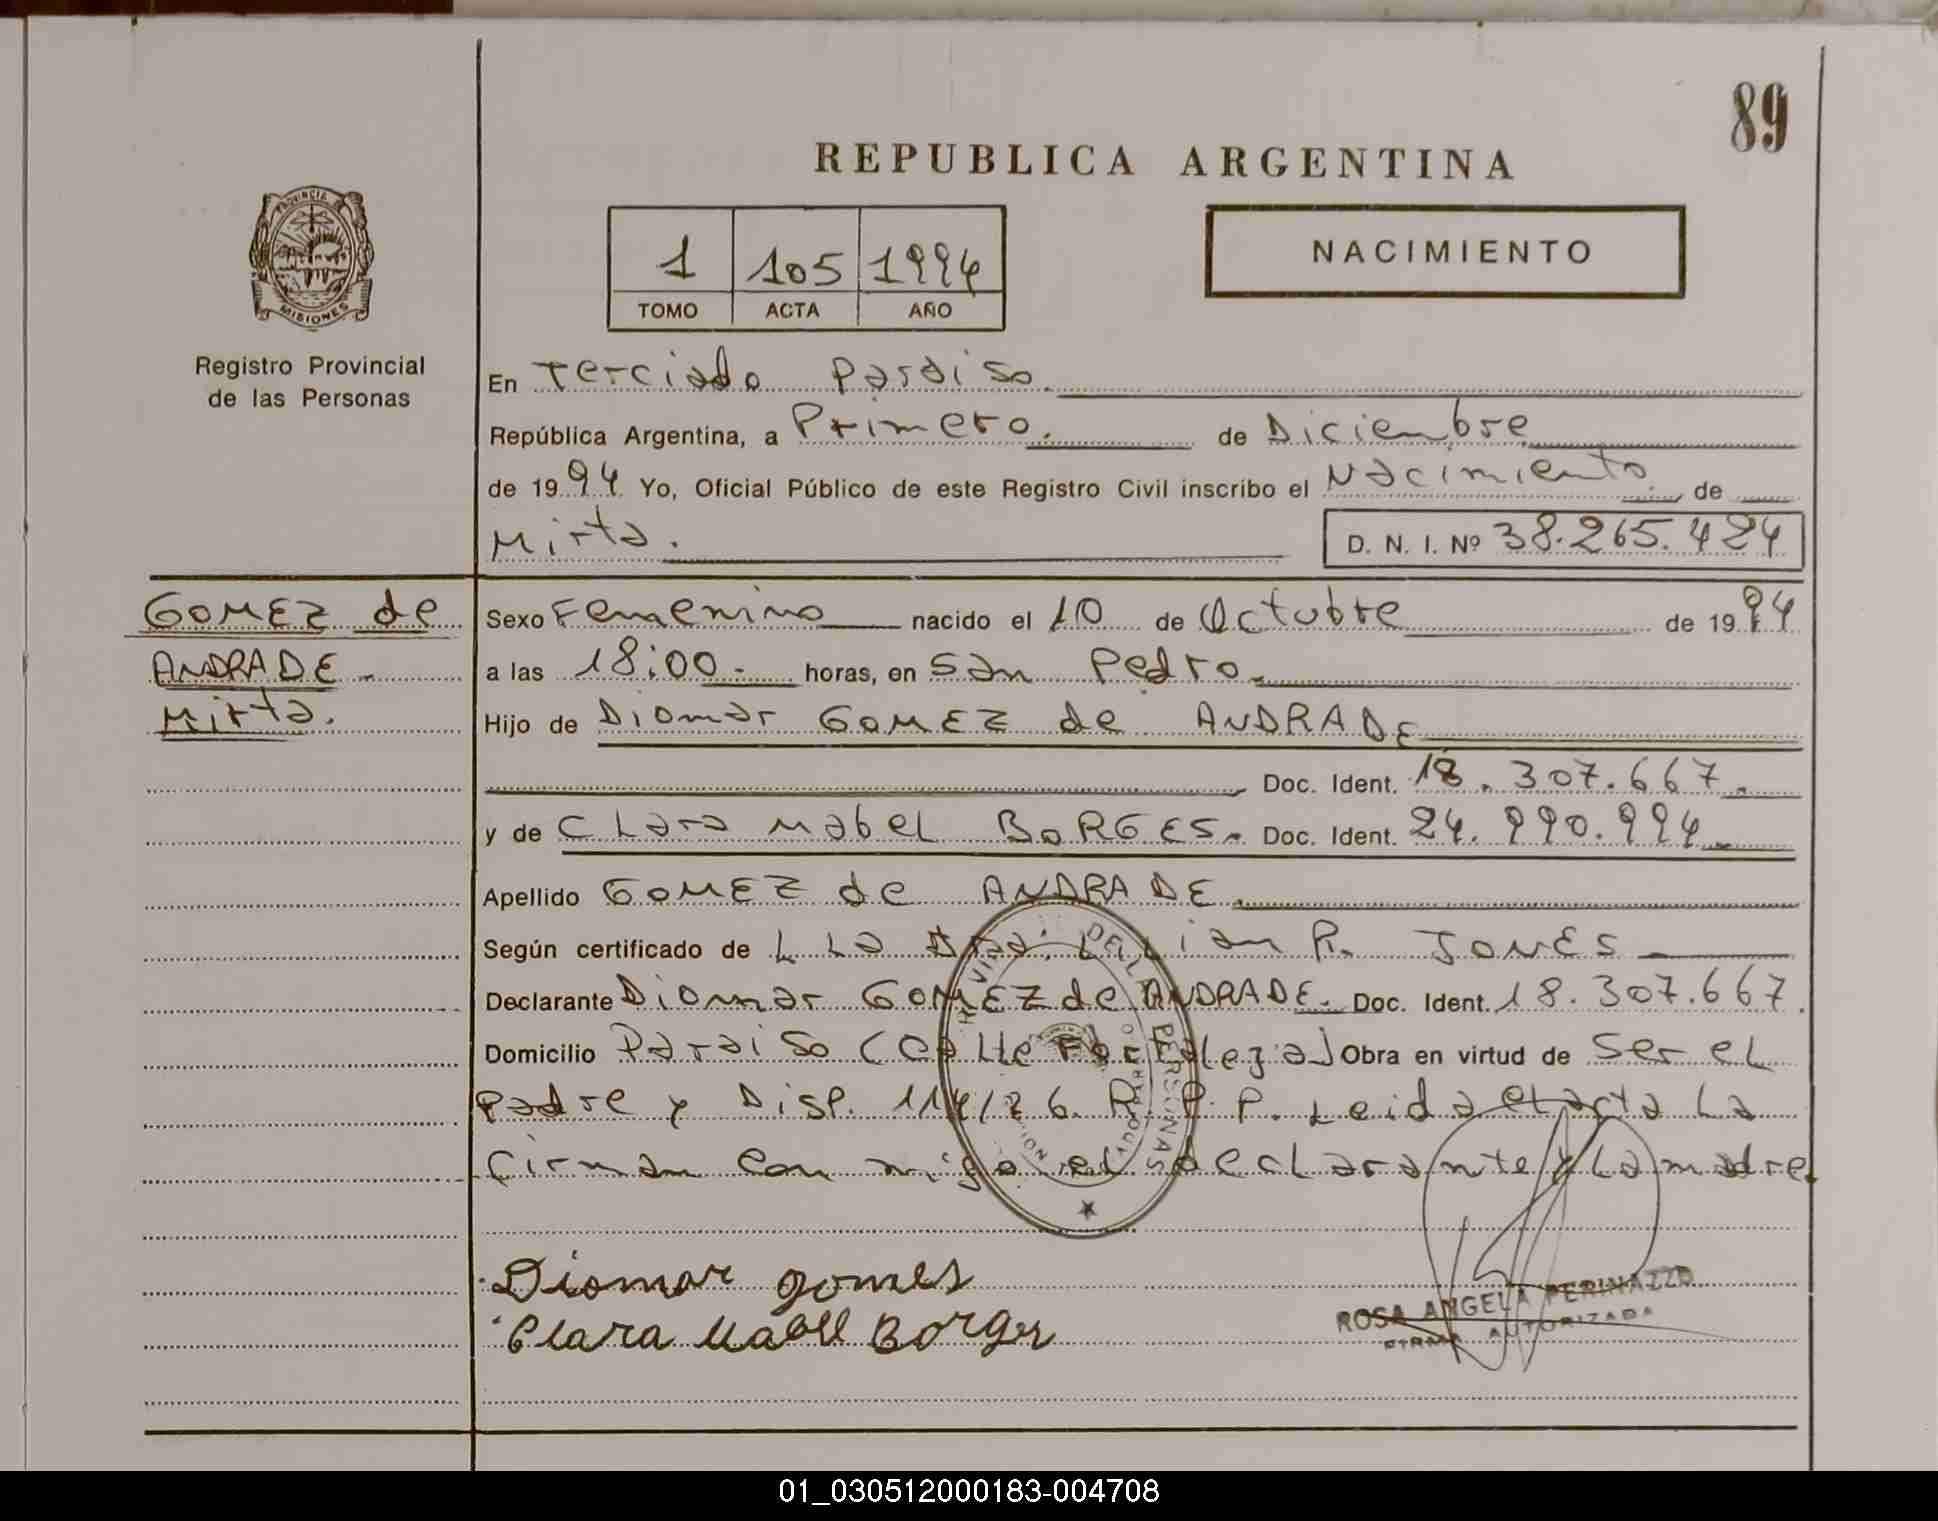 89
REPUBLICA ARGENTINA
PROVINCIA DE
MISIONES
1 105 1994
TOMO ACTA AÑO
NACIMIENTO
Registro Provincial
de las Personas
En Terciado Paraiso.
República Argentina, a Primero. de Diciembre
de 1994 Yo, Oficial Público de este Registro Civil inscribo el Nacimiento de
Mirta.
D. N. I. Nº 38.265.424
GOMEZ de
ANDRADE -
Mirta.
Sexo Femenino nacido el 10 de Octubre de 1994
a las 18:00 - horas, en San Pedro.
Hijo de Diomar GOMEZ de ANDRADE
Doc. Ident. 18.307.667.
y de Clara Mabel BORGES. Doc. Ident. 24.990.994
Apellido GOMEZ de ANDRADE.
Según certificado de LLa Dra. Lilian R. JONES
Declarante Diomar GOMEZ de ANDRADE. Doc. Ident. 18.307.667.
Domicilio Paraiso (Calle Fortaleza) Obra en virtud de Ser el
padre y Disp. R. P. P. Leida el acta La
firman con migo el declarante y La madre.
Diomar gomes
Clara Mabel Borges
ROSA ANGELA PERINAZZO
FIRMA AUTORIZADA
01_030512000183-004708